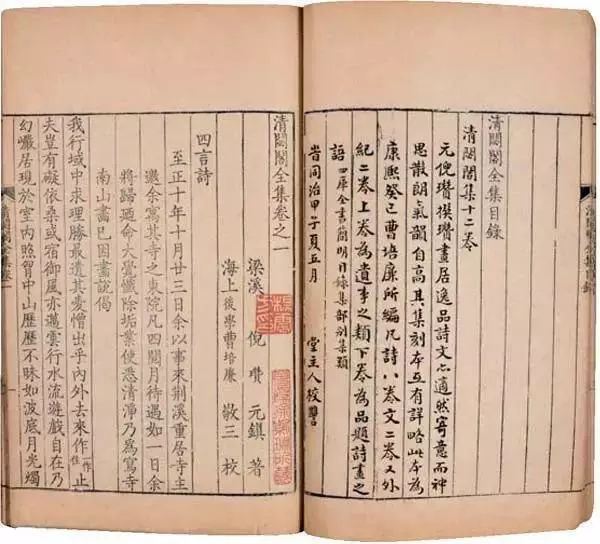 清閟閣全集目錄
清閟閣集十二卷
元倪瓚撰瓚畫居逸品詩文亦適然寄意而神
思散朗氣韻自高其集刻本互有詳略此本為
康熙癸巳曹培廉所編凡詩八卷文二卷又外
紀二卷上卷為遺事之類下卷為品題詩畫之
語 四庫全書簡明目錄集部別集類
旹同治甲子夏五月 堂主人校讐
清閟閣全集卷之一
梁溪 倪瓚 元鎮 著
海上後學曹培廉 敬三 校
四言詩
至正十年十月廿三日余以事來荆溪重居寺主
邀余寓其寺之東院凡四閱月待遇如一日余
將歸廼命大覺懺除垢業使悉清淨乃為寫寺
南山畫已因畫說偈
我行域中求理勝最遺其愛憎出乎內外去來作止
夫豈有礙依桑或宿御風亦邁雲行水流遊戲自在乃
幻巖居現於室內照胷中山歷歷不昧如波底月光燭